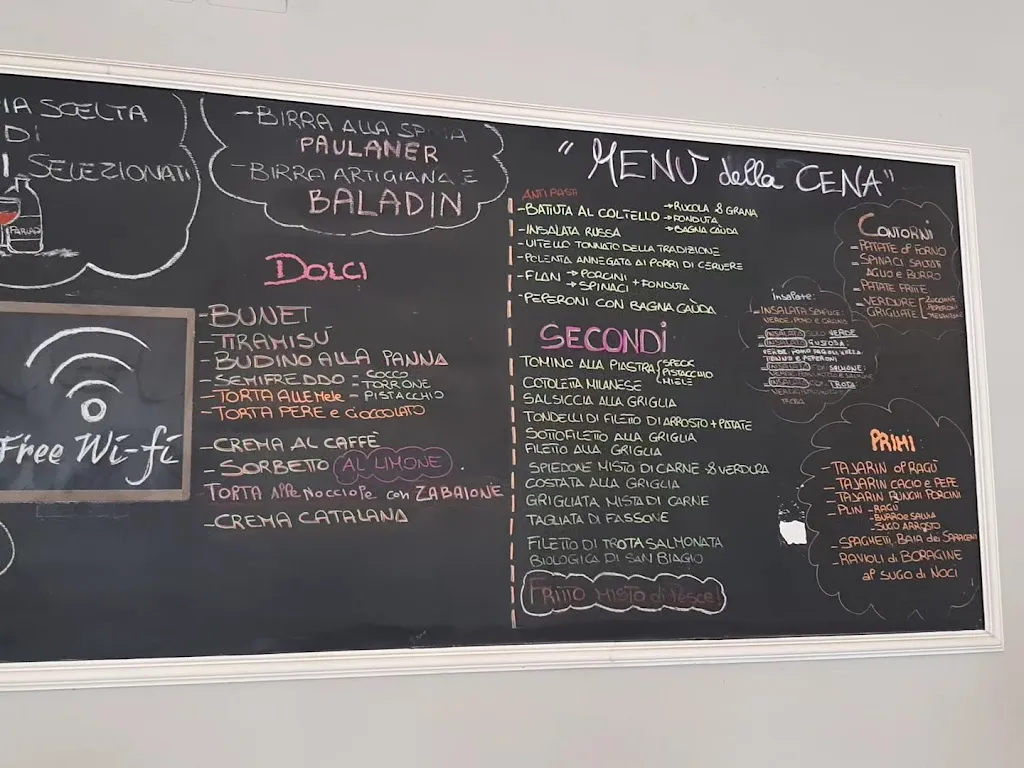 IA SCELTA
DI
I SELEZIONATI
- BIRRA ALLA SPINA
PAULANER
- BIRRA ARTIGIANA E
BALADIN
DOLCI
- BUNET
- TIRAMISÙ
- BUDINO ALLA PANNA
- SEMIFREDDO - COCCO
- TORRONE
- PISTACCHIO
- TORTA ALLE MELE
- TORTA PERE e CIOCCOLATO
- CREMA AL CAFFÈ
- SORBETTO AL LIMONE
TORTA ALLE NOCCIOLE con ZABAIONE
- CREMA CATALANA
Free Wi-fi
"MENÙ della CENA"
ANTIPASTI
- BATTUTA AL COLTELLO → RUCOLA & GRANA
→ FONDUTA
→ BAGNA CAÙDA
- INSALATA RUSSA
- VITELLO TONNATO DELLA TRADIZIONE
- POLENTA ANNEGATA AI PORRI DI CERVERE
- FLAN → PORCINI
→ SPINACI + FONDUTA
- PEPERONI CON BAGNA CAÙDA
SECONDI
TOMINO ALLA PIASTRA SPECK
PISTACCHIO
MIELE
COTOLETTA MILANESE
SALSICCIA ALLA GRIGLIA
TONDELLI DI FILETTO DI ARROSTO + PATATE
SOTTOFILETTO ALLA GRIGLIA
FILETTO ALLA GRIGLIA
SPIEDONE MISTO DI CARNE & VERDURA
COSTATA ALLA GRIGLIA
GRIGLIATA MISTA DI CARNE
TAGLIATA DI FASSONE
FILETTO DI TROTA SALMONATA
BIOLOGICA DI SAN BIAGIO
FRITTO MISTO di pesce!
CONTORNI
- PATATE al FORNO
- SPINACI SALTATI
AGLIO e BURRO
- PATATE FRITTE
- VERDURE ZUCCHINE
GRIGLIATE PEPERONI
MELANZANE
Insalate:
- INSALATA SEMPLICE:
VERDE, POMO E CAROTE
- INSALATA VERDE
- INSALATA GUSTOSA:
TONNO e PEPERONI
SALMONE:
TROTA
PRIMI
- TAJARIN al RAGÙ
- TAJARIN CACIO e PEPE
- TAJARIN FUNGHI PORCINI
- PLIN - RAGÙ
- BURRO e SALVIA
- SUGO ARROSTO
- SPAGHETTI BAIA dei SARACENI
- RAVIOLI di BORAGINE
al SUGO di NOCI